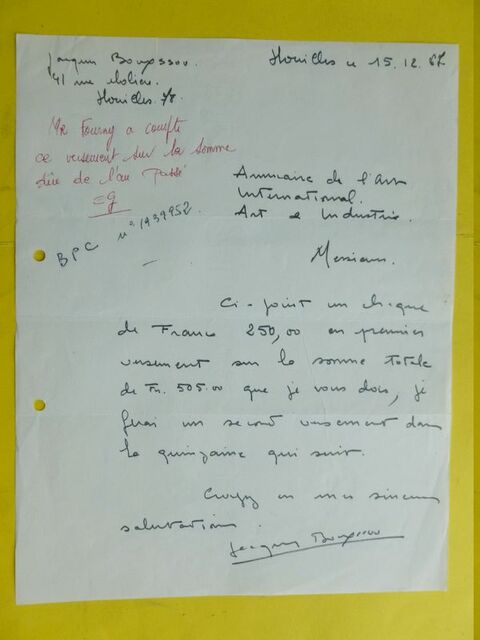 Jacques Bouyssou.
41 rue Molière.
Houilles. 78.
Houilles le 15.12.87.
Mr Fourny a compté
ce versement sur la somme
dûe de l'an passé
EG
BPC n° 1939952.
Annuaire de l'Art
International.
Art & Industrie.
Messieurs.
Ci-joint un chèque
de Francs 250,00 en premier
versement sur la somme totale
de Fr. 505.00 que je vous dois, je
ferai un second versement dans
la quinzaine qui suit.
Croyez en mes sincères
salutations.
Jacques Bouyssou